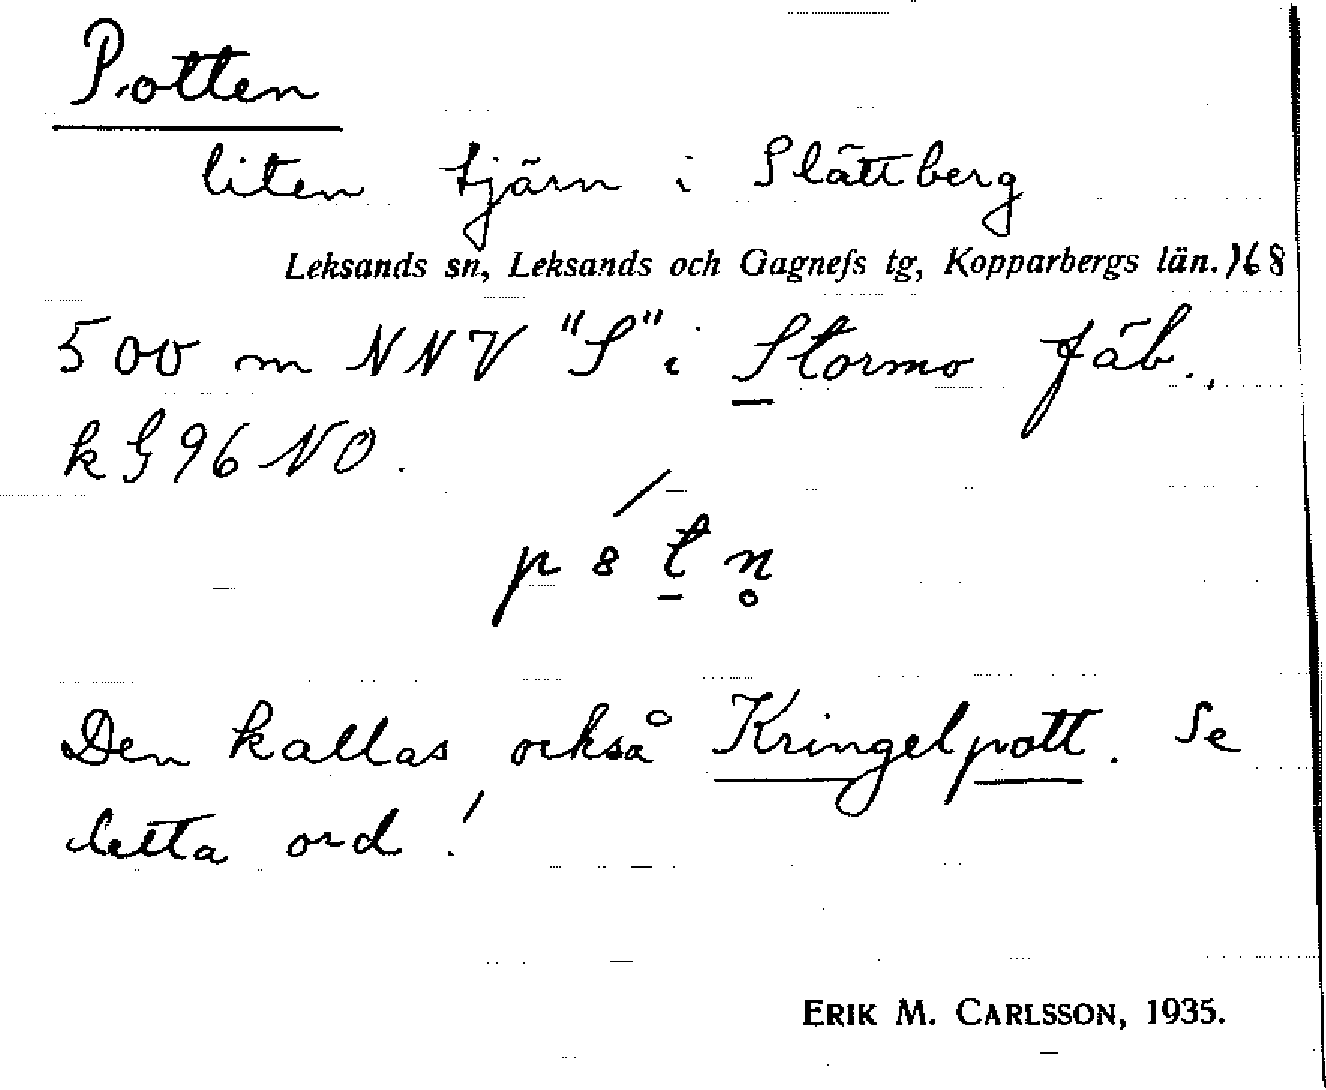 Potten
liten tjärn i Slättberg
Leksands sn, Leksands och Gagnefs tg, Kopparbergs län. 168
500 m NNV "S" i Stormo fäb.,
k G 96 NO.
Den kallas också Kringelpott. Se
detta ord!
ERIK M. CARLSSON, 1935.